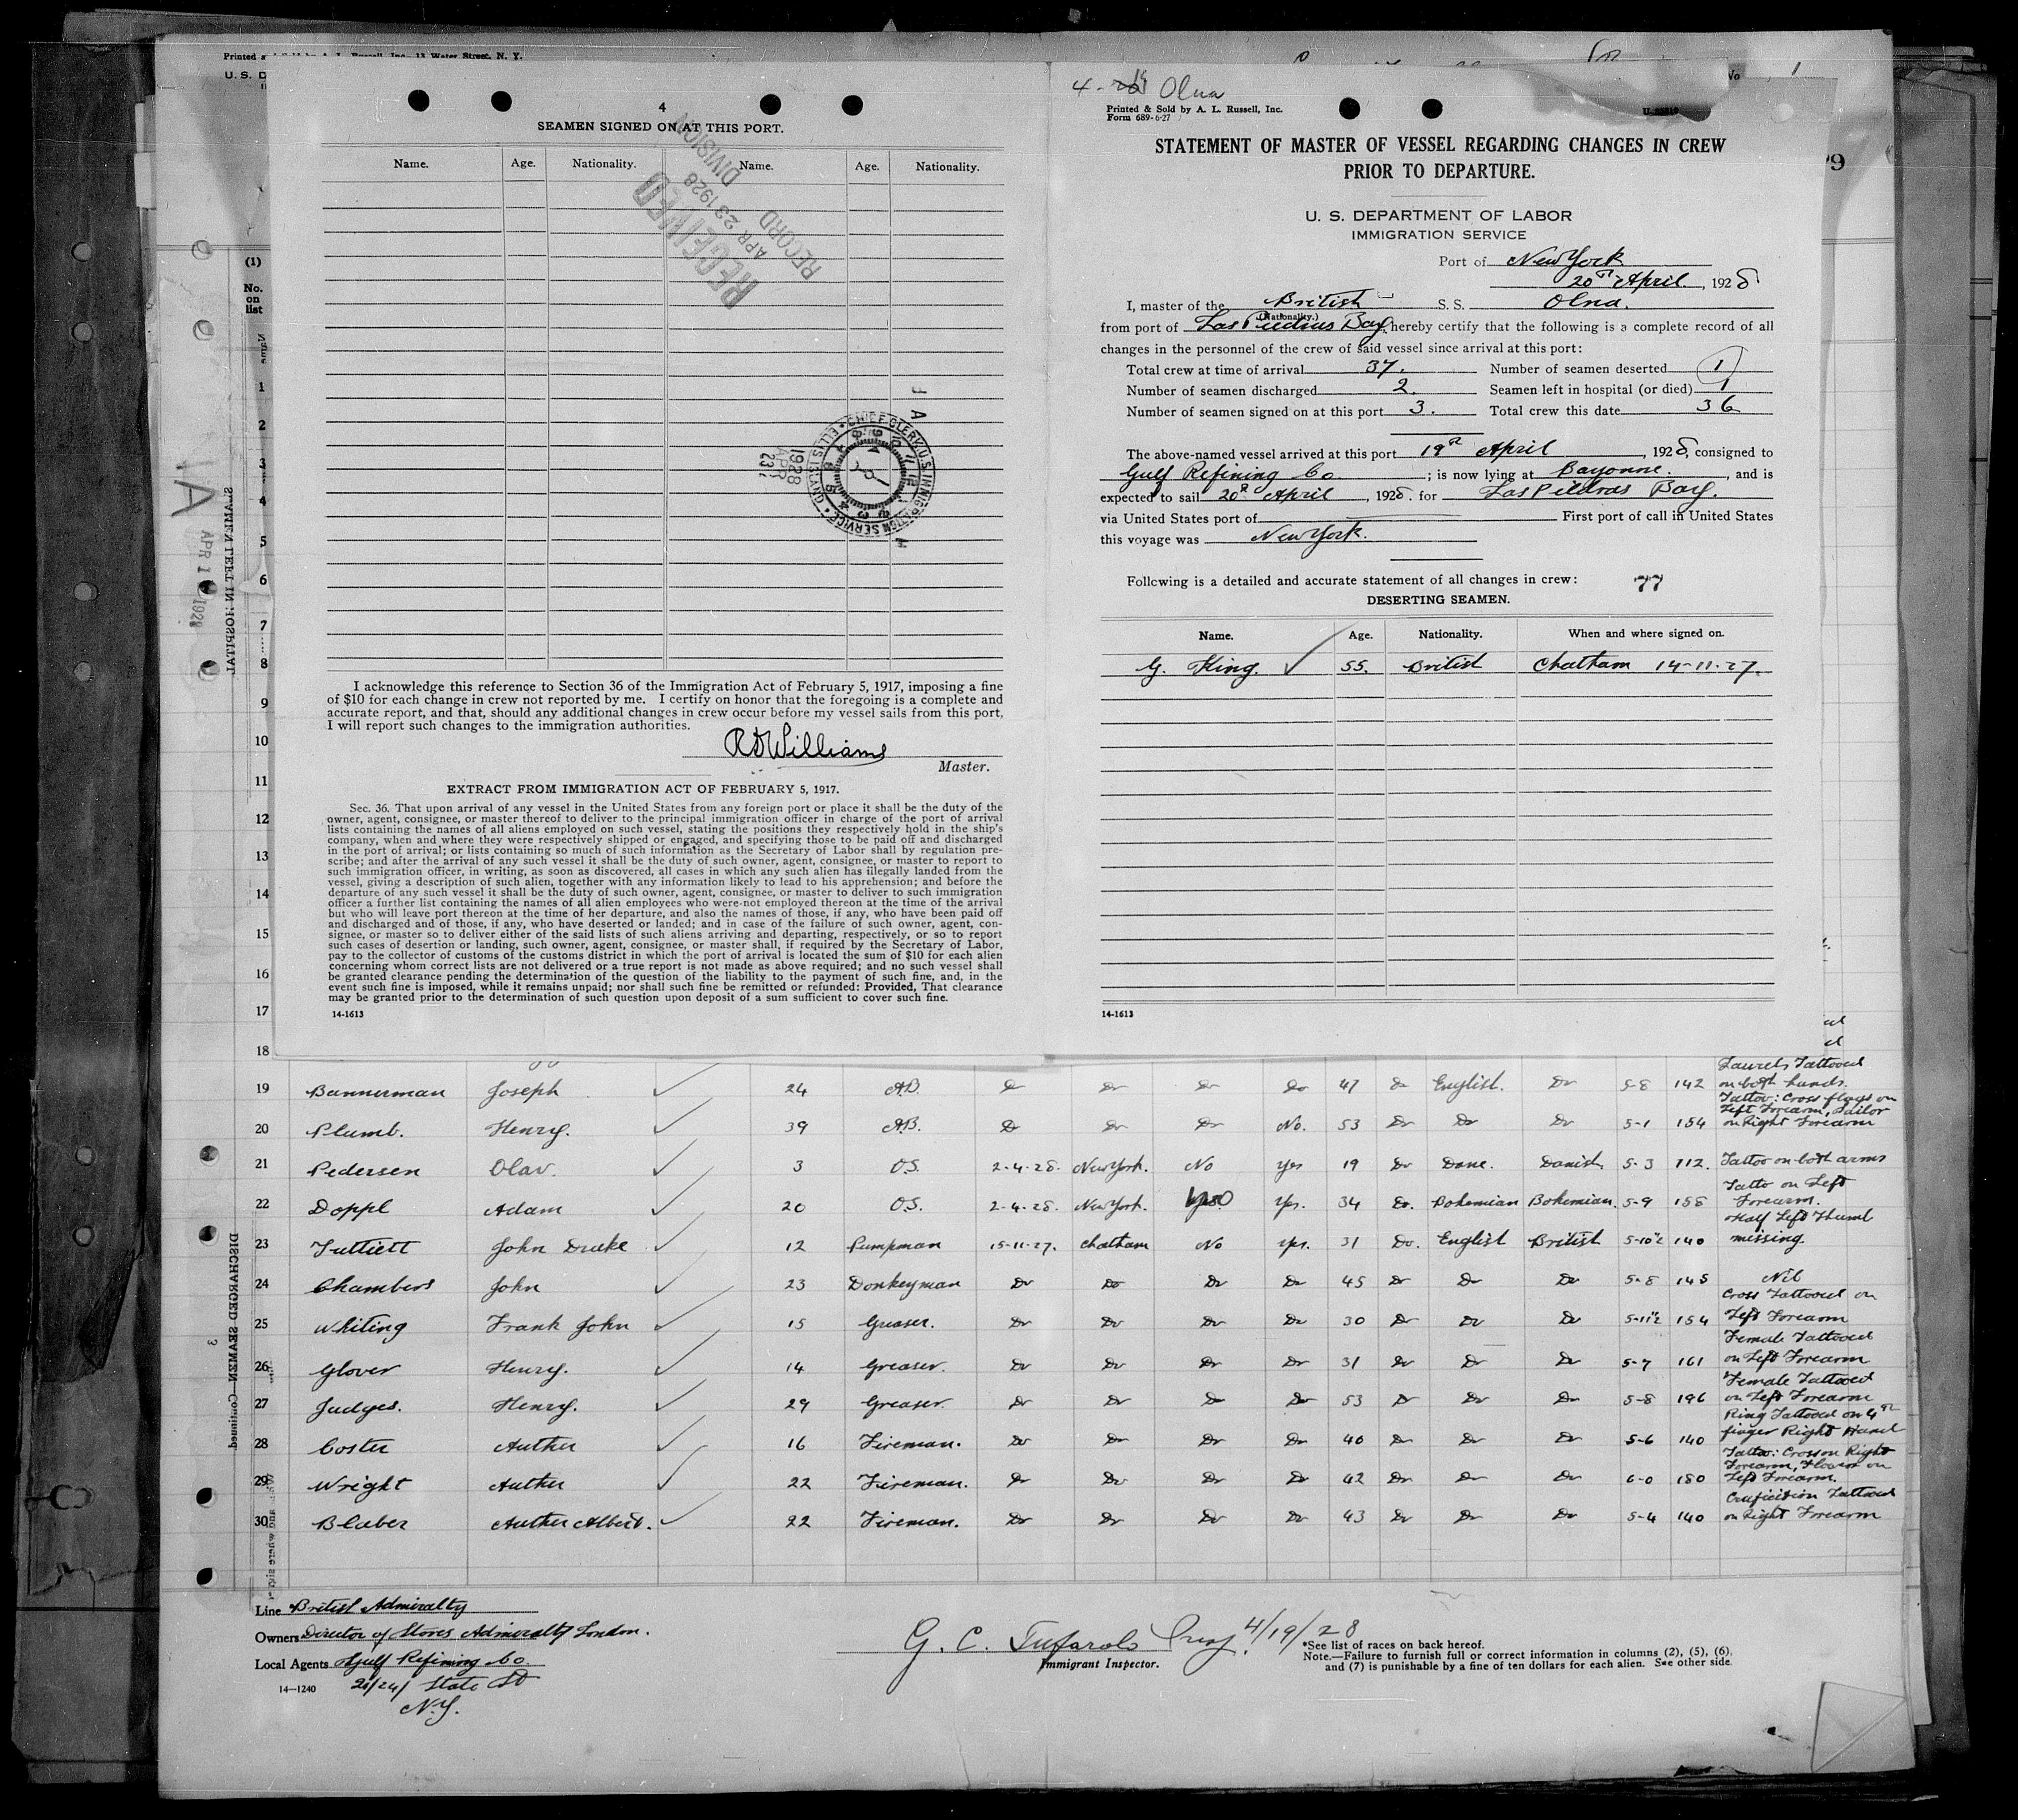 Printed
Water Street, N. Y.
U. S. D
4
SEAMEN SIGNED ON AT THIS PORT.
Name. Age. Nationality. Name. Age. Nationality.
RECEIVED
APR 23 1928
RECORD
DIVISION
CHIEF CLERK U.S. IMMIGRATION SERVICE
ELLIS ISLAND
1928
APR
23
I acknowledge this reference to Section 36 of the Immigration Act of February 5, 1917, imposing a fine
of $10 for each change in crew not reported by me. I certify on honor that the foregoing is a complete and
accurate report, and that, should any additional changes in crew occur before my vessel sails from this port,
I will report such changes to the immigration authorities.
RDWilliams
Master.
EXTRACT FROM IMMIGRATION ACT OF FEBRUARY 5, 1917.
Sec. 36. That upon arrival of any vessel in the United States from any foreign port or place it shall be the duty of the
owner, agent, consignee, or master thereof to deliver to the principal immigration officer in charge of the port of arrival
lists containing the names of all aliens employed on such vessel, stating the positions they respectively hold in the ship's
company, when and where they were respectively shipped or engaged, and specifying those to be paid off and discharged
in the port of arrival; or lists containing so much of such information as the Secretary of Labor shall by regulation pre-
scribe; and after the arrival of any such vessel it shall be the duty of such owner, agent, consignee, or master to report to
such immigration officer, in writing, as soon as discovered, all cases in which any such alien has illegally landed from the
vessel, giving a description of such alien, together with any information likely to lead to his apprehension; and before the
departure of any such vessel it shall be the duty of such owner, agent, consignee, or master to deliver to such immigration
officer a further list containing the names of all alien employees who were not employed thereon at the time of the arrival
but who will leave port thereon at the time of her departure, and also the names of those, if any, who have been paid off
and discharged and of those, if any, who have deserted or landed; and in case of the failure of such owner, agent, con-
signee, or master so to deliver either of the said lists of such aliens arriving and departing, respectively, or so to report
such cases of desertion or landing, such owner, agent, consignee, or master shall, if required by the Secretary of Labor,
pay to the collector of customs of the customs district in which the port of arrival is located the sum of $10 for each alien
concerning whom correct lists are not delivered or a true report is not made as above required; and no such vessel shall
be granted clearance pending the determination of the question of the liability to the payment of such fine, and, in the
event such fine is imposed, while it remains unpaid; nor shall such fine be remitted or refunded: Provided, That clearance
may be granted prior to the determination of such question upon deposit of a sum sufficient to cover such fine.
14-1613
Olna
Printed & Sold by A. L. Russell, Inc.
Form 689-6-27
STATEMENT OF MASTER OF VESSEL REGARDING CHANGES IN CREW
PRIOR TO DEPARTURE.
U. S. DEPARTMENT OF LABOR
IMMIGRATION SERVICE
Port of New York
20th April, 1928
I, master of the British S. S. Olna.
(Nationality.)
from port of Las Piedras Bay, hereby certify that the following is a complete record of all
changes in the personnel of the crew of said vessel since arrival at this port:
Total crew at time of arrival 37. Number of seamen deserted 1
Number of seamen discharged 2 Seamen left in hospital (or died) 1
Number of seamen signed on at this port 3. Total crew this date 36
The above-named vessel arrived at this port 19th April, 1928, consigned to
Gulf Refining Co.; is now lying at Bayonne., and is
expected to sail 20th April, 1928. for Las Piedras Bay.
via United States port of First port of call in United States
this voyage was New York.
Following is a detailed and accurate statement of all changes in crew: 77
DESERTING SEAMEN.
Name. Age. Nationality. When and where signed on.
G. King. 55. British Chatham 14-11-27.
14-1613
No 1
(1)
No. on list
1
2
3
4
5
6
7
8
9
10
11
12
13
14
15
16
17
18
SEAMEN LEFT IN HOSPITAL
DISCHARGED SEAMEN—Continued
3
19 Bannerman Joseph 24 A.B. Do Do Do Do 47 Do English. Do 5-8 142 Laurels Tattooed on both hands.
20 Plumb. Henry. 39 A.B. Do Do Do No. 53 Do Do Do 5-1 154 Tattoo: Cross flags on Left Forearm, Sailor on Right Forearm
21 Pedersen Olav. 3 O.S. 2-4-28. New York. No Yes 19 Do Dane. Danish 5-3 112. Tattoo on both arms
22 Doppl Adam 20 O.S. 2-4-28. New York. Yes. 34 Do. Bohemian Bohemian. 5-9 158 Tatto on Left Forearm.
23 Tuttiett John Drake 12 Pumpman 15-11-27. Chatham No Yes. 31 Do. English British 5-10½ 140 Half Left Thumb missing.
24 Chambers John 23 Donkeyman Do Do Do Do 45 Do Do Do 5-8 145 Nil
25 Whiting Frank John 15 Greaser. Do Do Do Do 30 Do Do Do 5-11½ 154 Cross Tattooed on Left Forearm
26 Glover Henry. 14 Greaser. Do Do Do Do 31 Do Do Do 5-7 161 Female Tattooed on Left Forearm
27 Judges. Henry. 29 Greaser. Do Do Do Do 53 Do Do Do 5-8 196 Female Tattooed on Left Forearm
28 Coster Auther 16 Fireman. Do Do Do Do 40 Do Do Do 5-6 140 Ring Tattooed on 4th finger Right Hand
29 Wright Auther 22 Fireman. Do Do Do Do 42 Do Do Do 6-0 180 Tattoo: Cross on Right Forearm, Flower on Left Forearm.
30 Blaber Auther Albert. 22 Fireman. Do Do Do Do 43 Do Do Do 5-4 140 Crucifiction Tattooed on Right Forearm
Line British Admiralty
Owners Director of Stores Admiralty London.
Local Agents Gulf Refining Co.
21/24/ State St
N.Y.
14—1240
G. C. Tufarolo 4/19/28
Immigrant Inspector.
*See list of races on back hereof.
Note.—Failure to furnish full or correct information in columns (2), (5), (6),
and (7) is punishable by a fine of ten dollars for each alien. See other side.